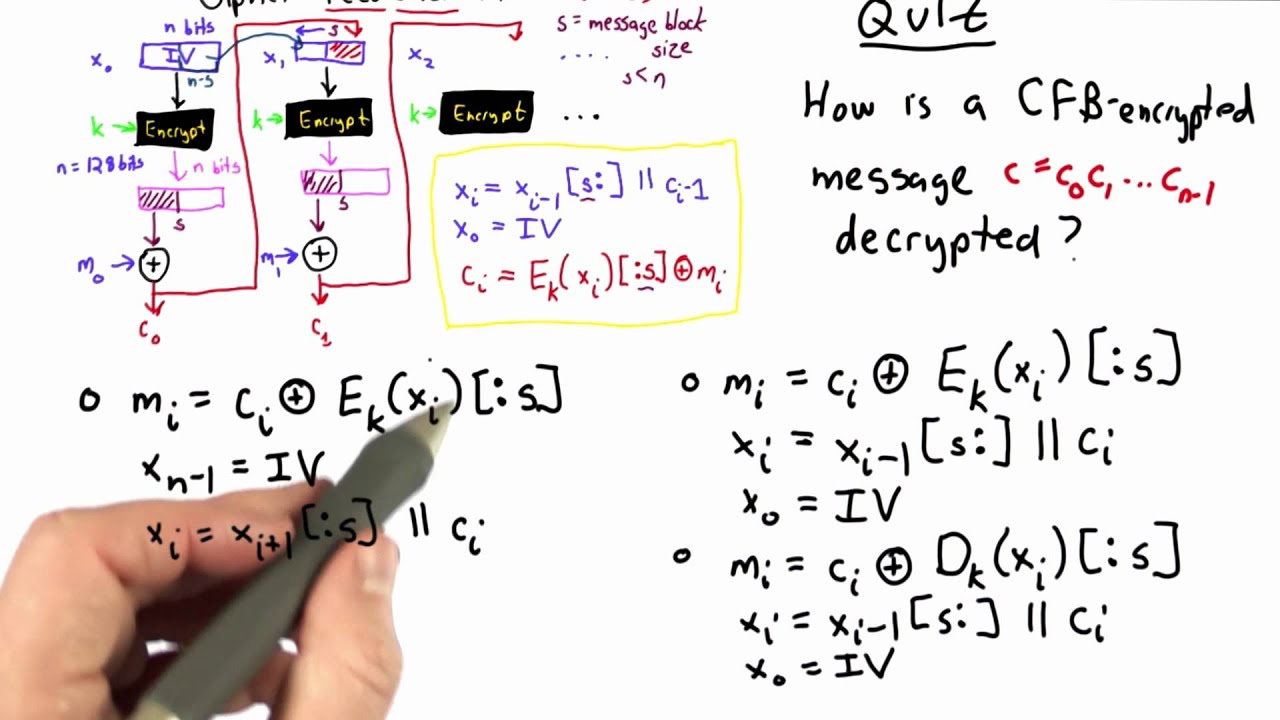 Cipher
n bits
s
s = message block
size
s < n
x₀
IV
x₁
x₂
n-s
k → Encrypt
k → Encrypt
k → Encrypt ...
n = 128 bits
n bits
s
s
m₀ → +
m₁ → +
c₀
c₁
xᵢ = xᵢ₋₁[s:] || cᵢ₋₁
x₀ = IV
cᵢ = Eₖ(xᵢ)[:s] ⊕ mᵢ
Quiz
How is a CFB-encrypted
message c = c₀c₁...cₙ₋₁
decrypted?
mᵢ = cᵢ ⊕ Eₖ(xᵢ)[:s]
xₙ₋₁ = IV
xᵢ = xᵢ₊₁[:s] || cᵢ
mᵢ = cᵢ ⊕ Eₖ(xᵢ)[:s]
xᵢ = xᵢ₋₁[s:] || cᵢ
x₀ = IV
mᵢ = cᵢ ⊕ Dₖ(xᵢ)[:s]
xᵢ = xᵢ₋₁[s:] || cᵢ
x₀ = IV